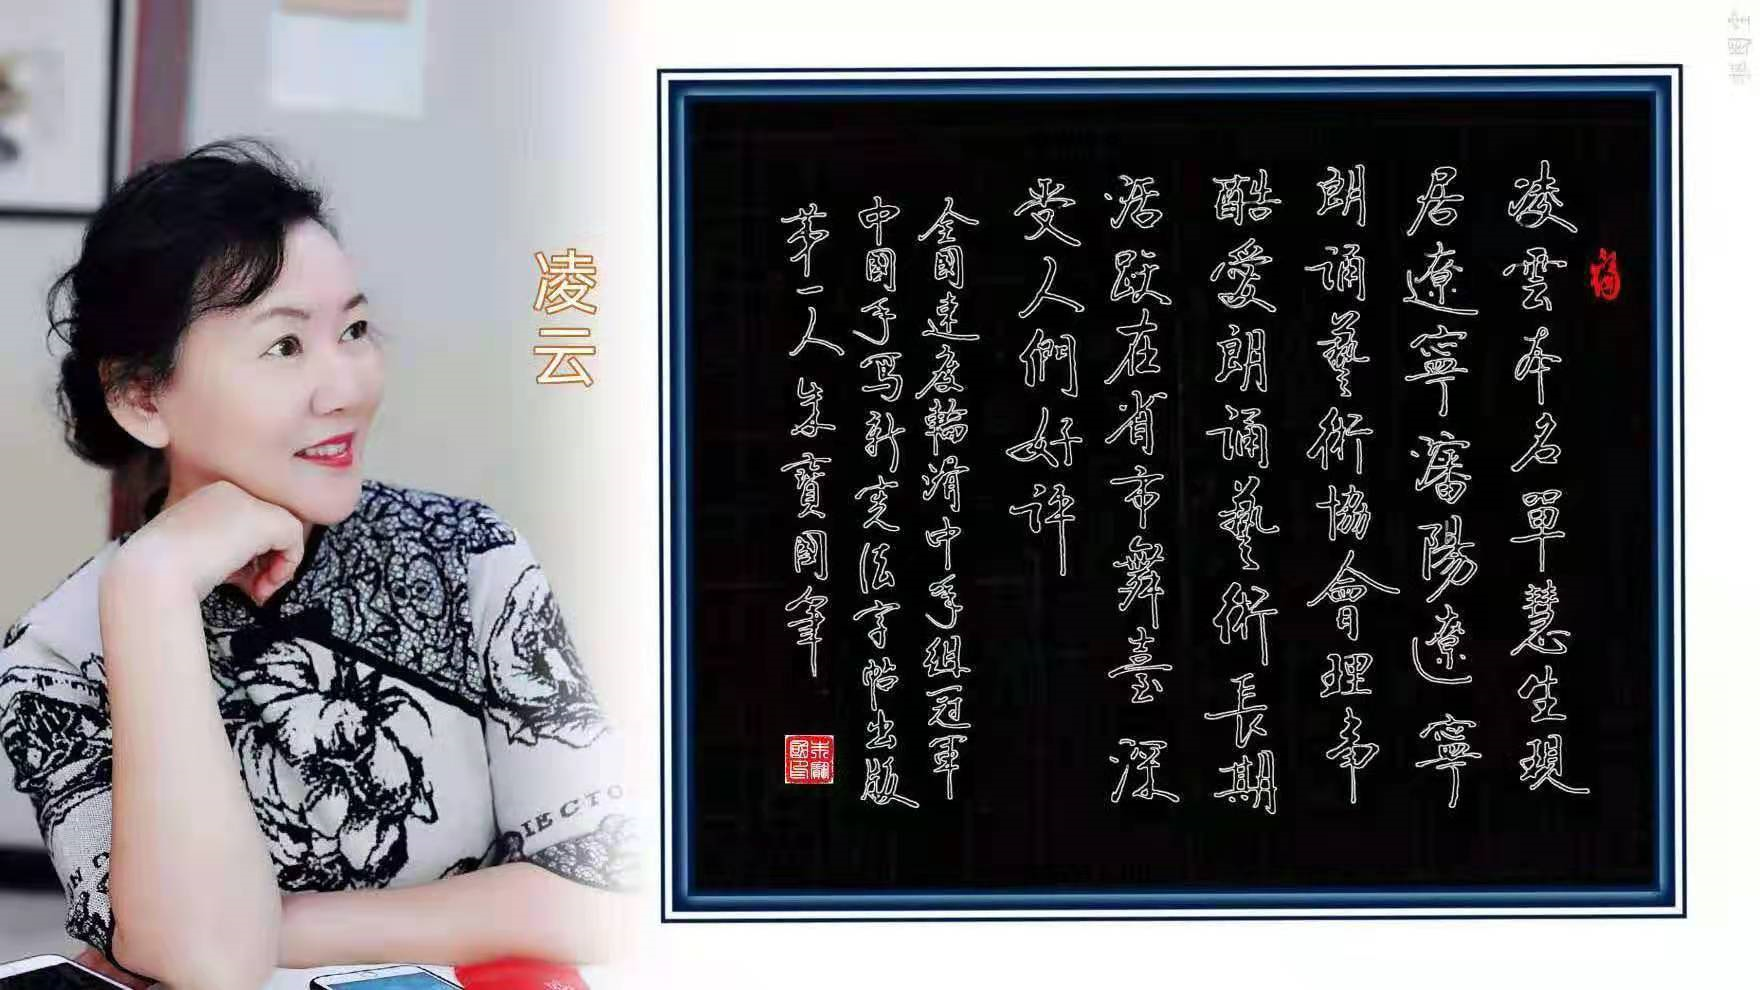 凌云
凌雲本名單慧生現
居遼寧瀋陽遼寧
朗誦藝術協會理事
酷愛朗誦藝術長期
活跃在省市舞臺深
受人們好评
全國速度輪滑中年組冠軍
中國手寫新憲法字帖出版
第一人朱寶國筆